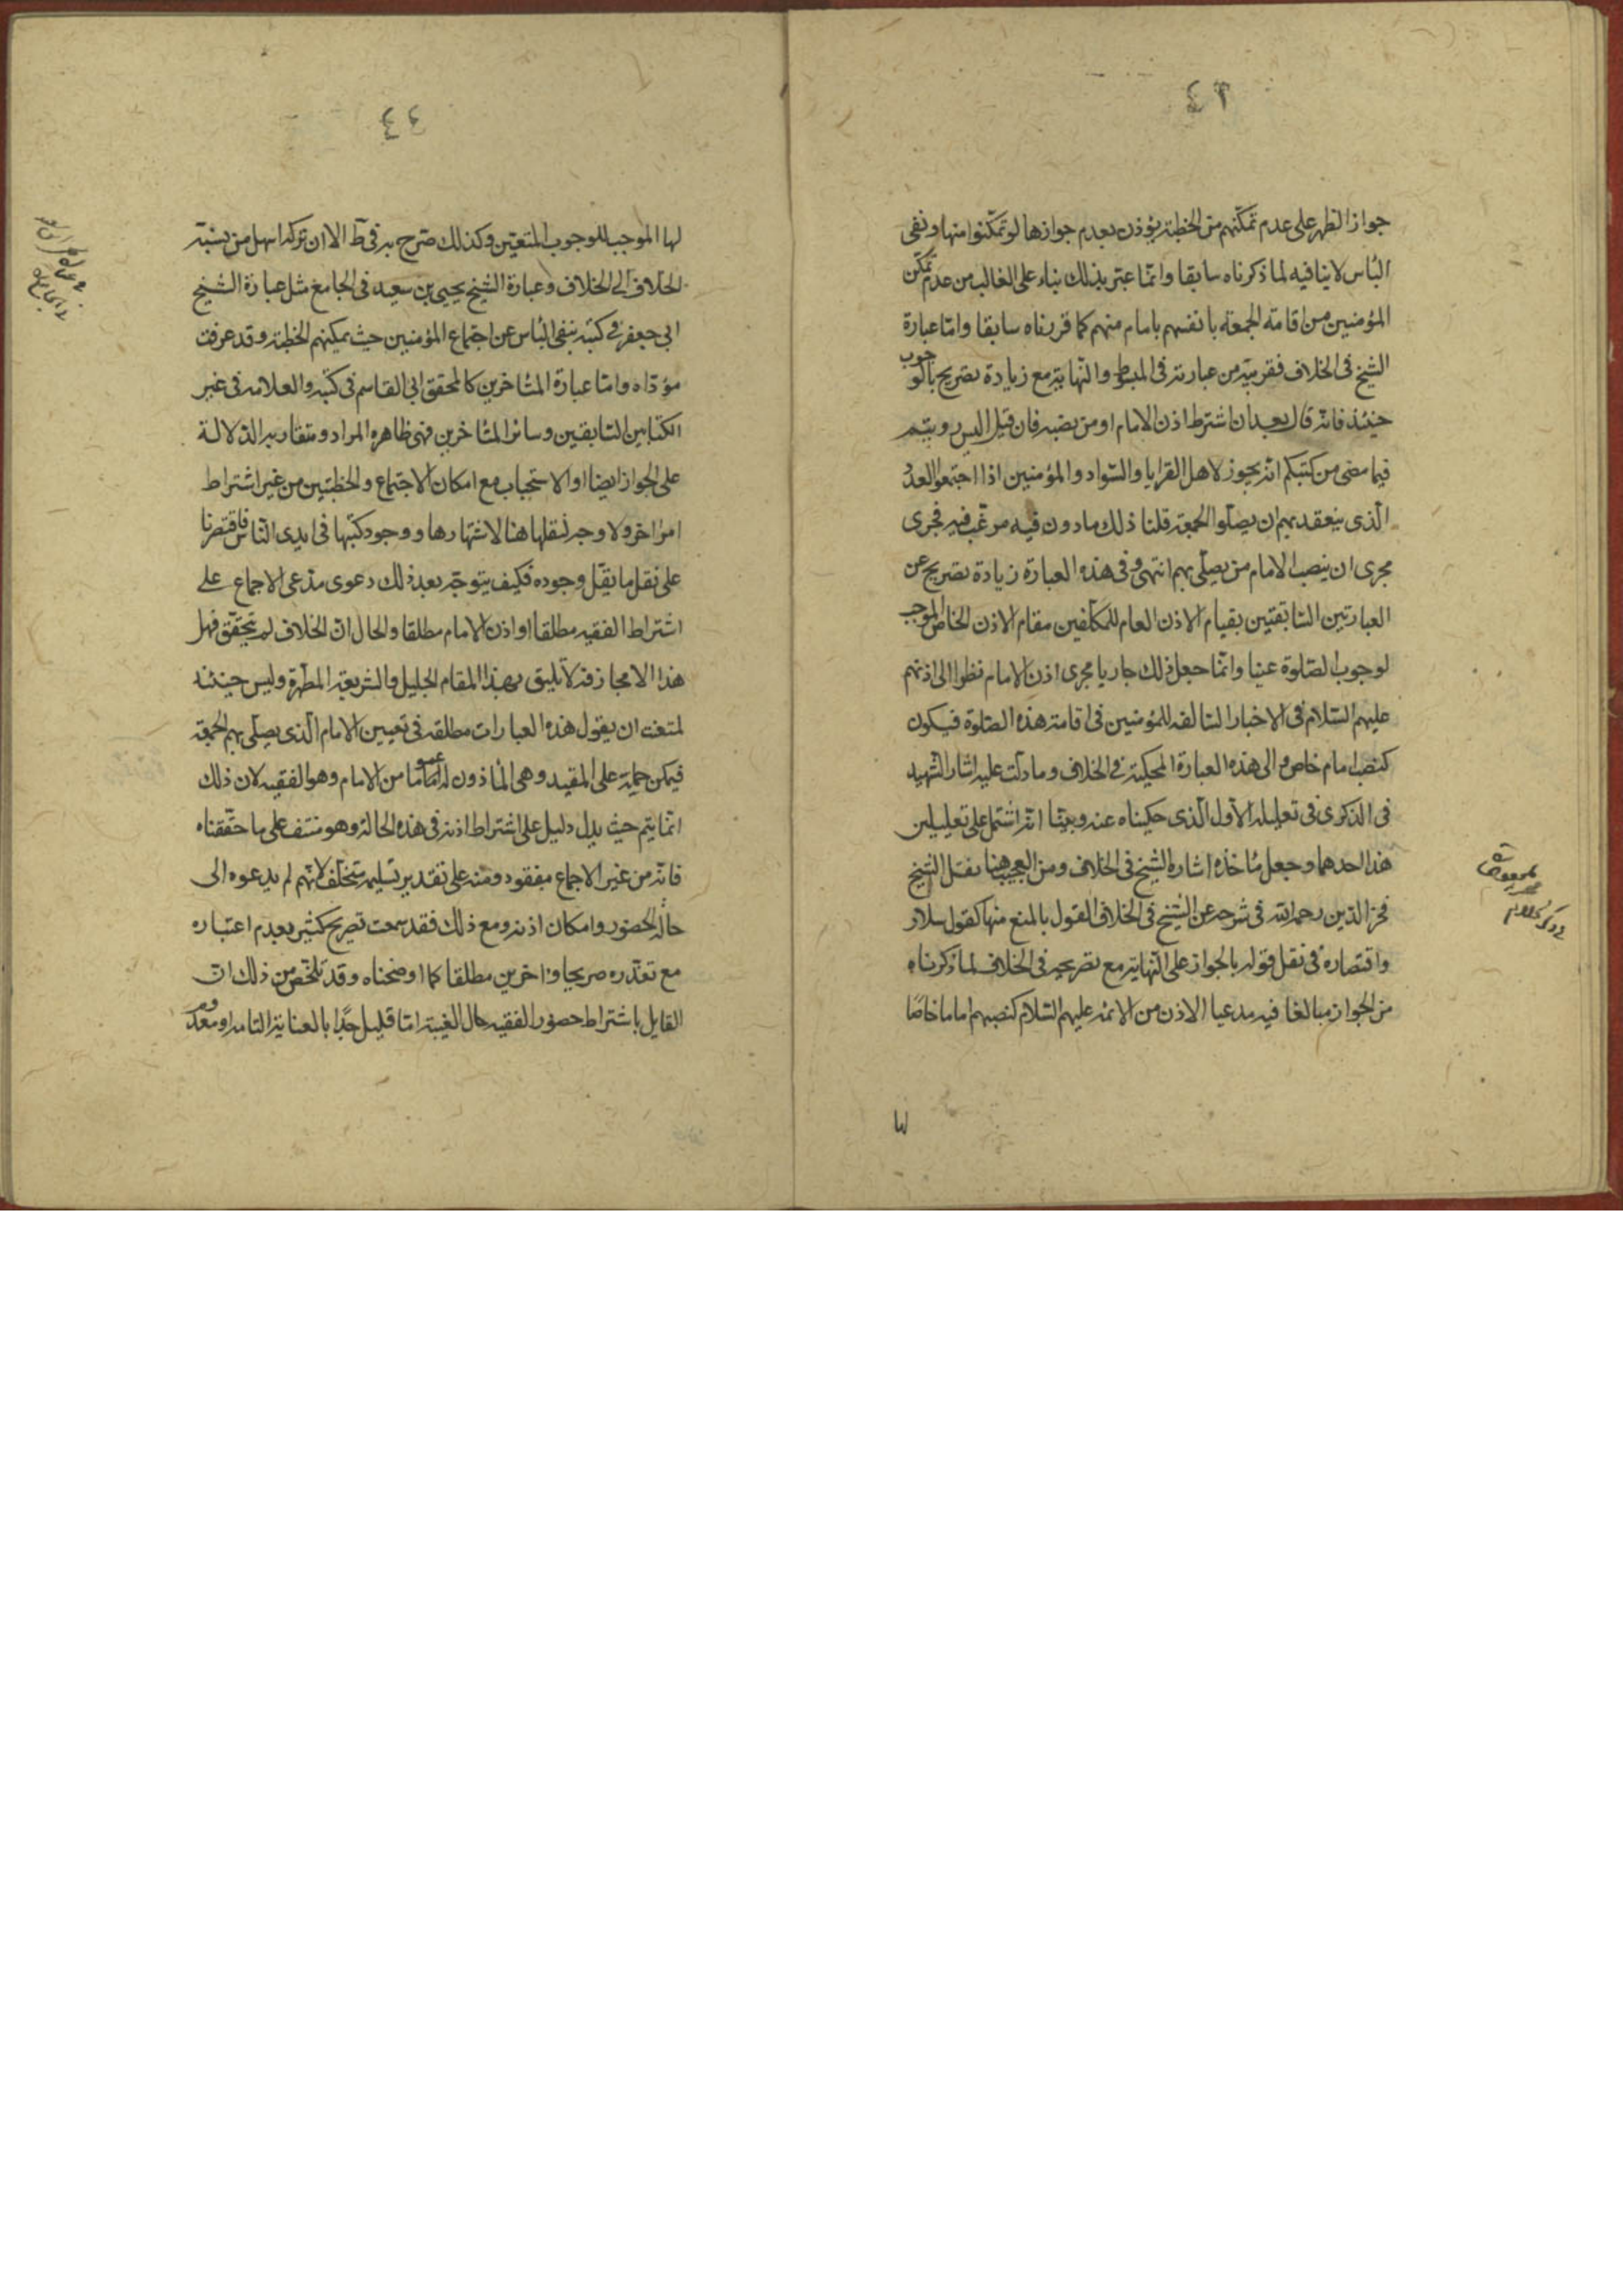 ٤٣
جواز الظهر على عدم تمكنهم من الخطبة يؤذن بعدم جوازها لو تمكنوا منها ونفى
الباس لا ينافيه لما ذكرناه سابقا وانما عبر بذلك بناء على الغالب من عدم تمكن
المؤمنين من اقامة الجمعة بانفسهم بامام منهم كما قررناه سابقا واما عبارة
الشيخ فى الخلاف فقريبة من عبارته فى المبسوط والنهاية مع زيادة تصريح بالوجوب
حينئذ فانه قال بعد ان اشترط اذن الامام او من نصبه فان قيل اليس رويتم
فيما مضى من كتبكم انه يجوز لاهل القرايا والسواد والمؤمنين اذا اجتمعوا العدد
الذى ينعقد بهم ان يصلوا الجمعة قلنا ذلك ماذون فيه مرغب فيه فجرى
مجرى ان ينصب الامام من يصلى بهم انتهى وفى هذه العبارة زيادة تصريح عن
العبارتين السابقتين بقيام الاذن العام للمكلفين مقام الاذن الخاص الموجب
لوجوب الصلوة عينا وانما جعل ذلك جاريا مجرى اذن الامام نظرا الى اذنهم
عليهم السلام فى الاخبار السالفة للمؤمنين فى اقامة هذه الصلوة فيكون
كنصب امام خاص والى هذه العبارة المحكية فى الخلاف وما دلت عليه اشار الشهيد
فى الذكرى فى تعليله الاول الذى حكيناه عنه وبينا انه اشتمل على تعليلين
هذا احدهما وجعل ماخذه اشارة الشيخ فى الخلاف ومن العجيب هنا نقل الشيخ
فخر الدين رحمه الله فى شرحه عن الشيخ فى الخلاف القول بالمنع منها كقول سلار
واقتصاره فى نقل قوله بالجواز على النهاية مع تصريحه فى الخلاف لما ذكرناه
من الجواز مبالغا فيه مدعيا الاذن من الائمة عليهم السلام كنصبهم اماما خاصا
لها
٤٤
لها الموجب للوجوب المتعين وكذلك صرح به فى ط الا ان تركه اسهل من نسبة
الخلاف الى الخلاف وعبارة الشيخ يحيى بن سعيد فى الجامع مثل عبارة الشيخ
ابى جعفر فى كتبه بنفى الباس عن اجتماع المؤمنين حيث يمكنهم الخطبة وقد عرفت
مؤداه واما عبارة المتاخرين كالمحقق ابى القاسم فى كتبه والعلامة فى غير
الكتابين السابقين وسائر المتاخرين فهى ظاهرة المراد ومتقاربة الدلالة
على الجواز ايضا او الاستحباب مع امكان الاجتماع والخطبتين من غير اشتراط
امر اخر ولا وجه لنقلها هنا لاشتهارها ووجود كتبها فى ايدى الناس فاقتصرنا
على نقل ما يقل وجوده فكيف يتوجه بعد ذلك دعوى مدعى الاجماع على
اشتراط الفقيه مطلقا او اذن الامام مطلقا والحال ان الخلاف لم يتحقق فهل
هذا الا مجازفة لا تليق بهذا المقام الجليل والشريعة المطهرة وليس حينئذ
لمتعنت ان يقول هذه العبارات مطلقة فى تعيين الامام الذى يصلى بهم الجمعة
فيمكن حملها على المقيد وهى الماذون له عموما من الامام وهو الفقيه لان ذلك
انما يتم حيث يدل دليل على اشتراط اذنه فى هذه الحالة وهو منتف على ما حققناه
فانه من غير الاجماع مفقود ومنه على تقدير تسليمه متخلف لانهم لم يدعوه الى
حالة الحضور وامكان اذنه ومع ذلك فقد سمعت تصريح كثير بعدم اعتباره
مع تعذره صريحا واخرين مطلقا كما اوضحناه وقد تلخص من ذلك ان
القايل باشتراط حضور الفقيه حال الغيبة اما قليل جدا بالعناية التامة او معدوم